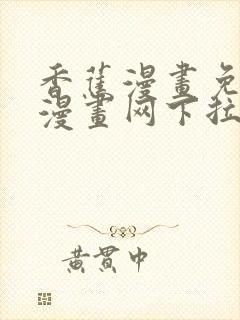 香蕉漫畫免
漫畫网下拉
黃貫中